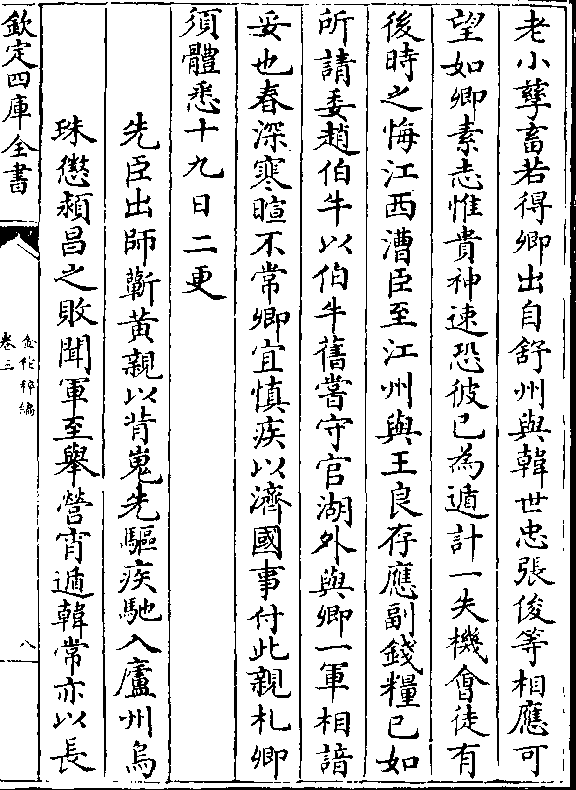 老小孳畜若得卿出自舒州與韓世忠張俊等相應可
望如卿素志惟貴神速恐彼已為遁計一失機會徒有
後時之悔江西漕臣至江州與王良存應副錢糧已如
所請委趙伯牛以伯牛舊嘗守官湖外與卿一軍相諳
妥也春深寒暄不常卿宜慎疾以濟國事付此親札卿
須體悉十九日二更
先臣出師蘄黃親以背嵬先驅疾馳入廬州烏
珠懲潁昌之敗聞軍至舉營宵遁韓常亦以長
欽定四庫全書
金佗稡編
卷三
八